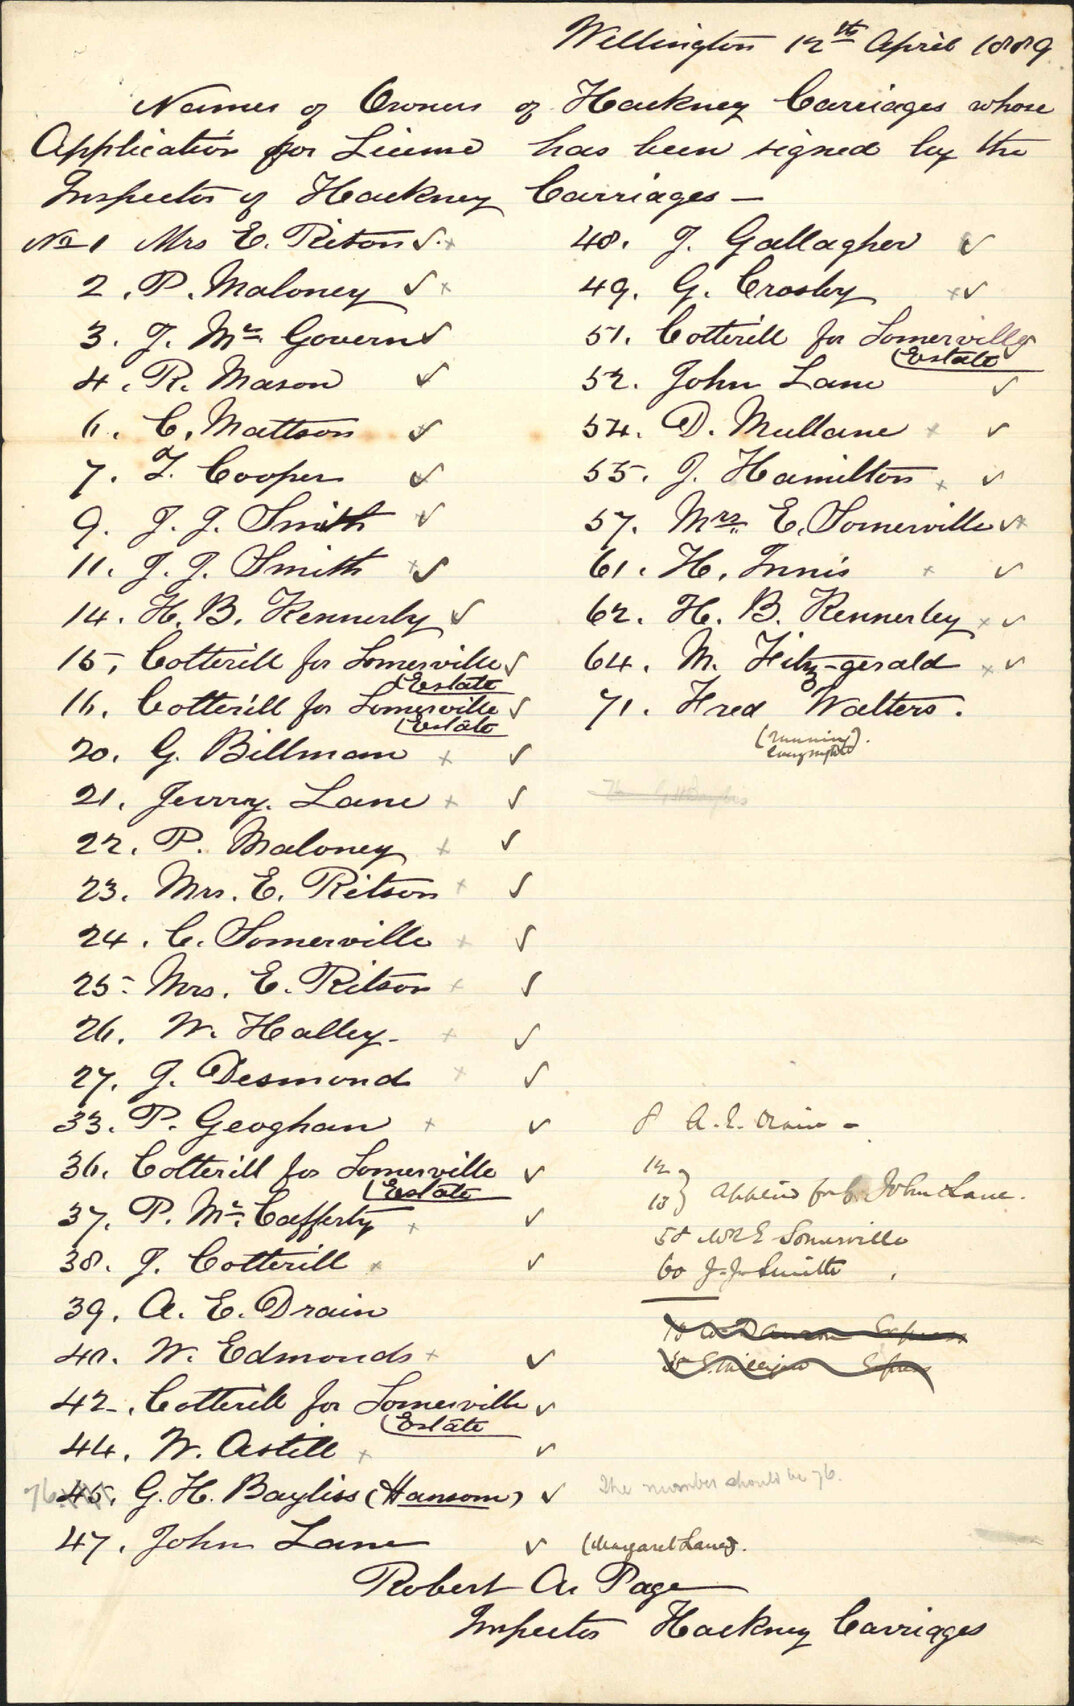 Wellington 12th April 1889
Names of Owners of Hackney Carriages whose
Application for License has been signed by the
Inspector of Hackney Carriages —
No 1 Mrs E. Ritson
2. P. Maloney
3. J. Mc. Govern
4. R. Mason
6. C. Mattson
7. T. Cooper
9. J. J. Smith
11. J. J. Smith
14. H. B. Kennerly
15. Cotterill for Somerville
(Estate
16. Cotterill for Somerville
(Estate
20. G. Billman
21. Jerrry. Lane
22. P. Maloney
23. Mrs. E. Ritson
24. C. Somerville
25. Mrs. E. Ritson
26. W. Halley.
27. J. Desmond
33. P. Geoghan
36. Cotterill for Somerville
(Estate
37. P. Mc. Cafferty
38. J. Cotterill
39. A. E. Drain
40. W. Edmonds
42. Cotterill for Somerville
(Estate
44. W. Astill
76. 45. G. H. Bayliss (Hansom)
47. John Lane
48. J. Gallagher
49. G. Crosby
51. Cotterill for Somerville
(Estate
52. John Lane
54. D. Mullane
55. J. Hamilton
57. Mrs. E. Somerville
61. H. Innis
62. H. B. Kennerley
64. M. Fitz-gerald
71. Fred Walters.
(running).
76 G H Bayliss
8 A. E. Drain —
12
13 } applied for by John Lane.
58 Mr E Somerville
60 J. J. Smith
Express
Express
The number should be 76.
(Margaret Lane).
Robert A. Page
Inspector Hackney Carriages